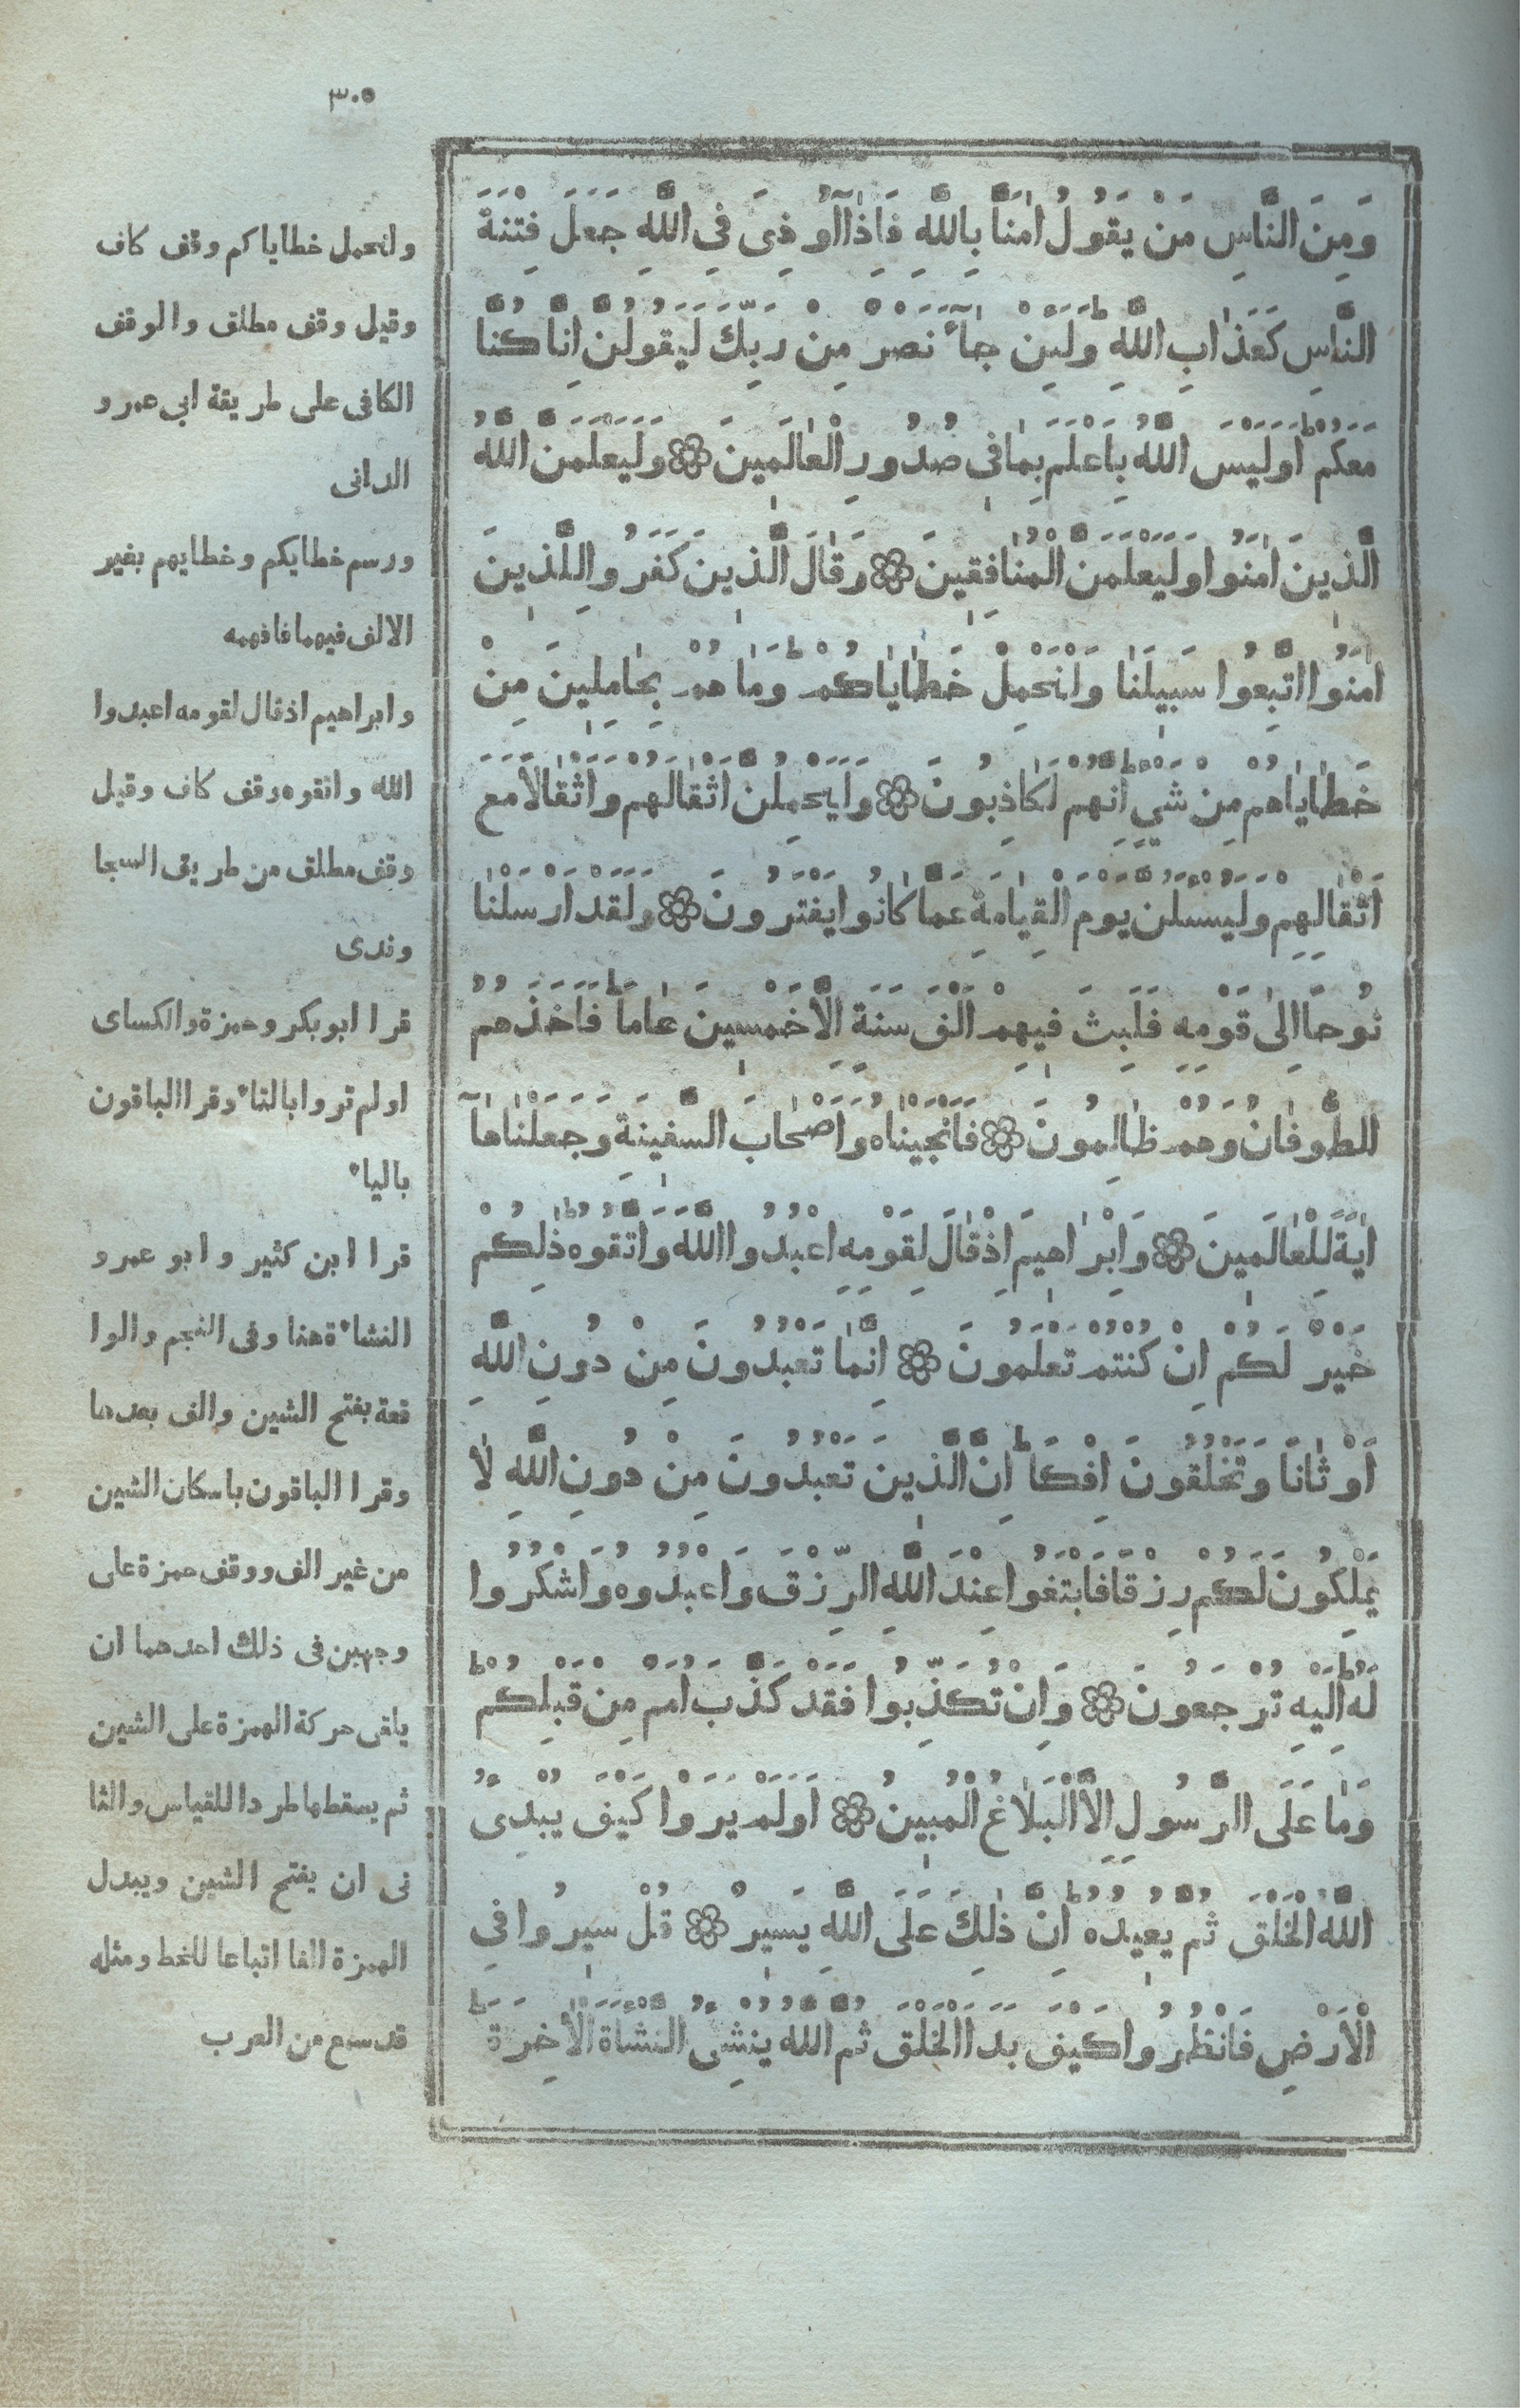 ٣٠٥
وَمِنَ النَّاسِ مَنْ يَقُولُ اٰمَنَّا بِاللّٰهِ فَاِذَاۤ اُو۫ذِىَ فِى اللّٰهِ جَعَلَ فِتْنَةَ
النَّاسِ كَعَذَابِ اللّٰهِ ط وَلَئِنْ جَاۤءَ نَصْرٌ مِنْ رَبِّكَ لَيَقُولُنَّ اِنَّا كُنَّا
مَعَكُمْ ط اَوَلَيْسَ اللّٰهُ بِاَعْلَمَ بِمَا فِى صُدُورِ الْعَالَمِينَ ۝ وَلَيَعْلَمَنَّ اللّٰهُ
الَّذِينَ اٰمَنُوا وَلَيَعْلَمَنَّ الْمُنَافِقِينَ ۝ وَقَالَ الَّذِينَ كَفَرُوا لِلَّذِينَ
اٰمَنُوا اتَّبِعُوا سَبِيلَنَا وَلْنَحْمِلْ خَطَايَاكُمْ ط وَمَا هُمْ بِحَامِلِينَ مِنْ
خَطَايَاهُمْ مِنْ شَيْءٍ ط اِنَّهُمْ لَكَاذِبُونَ ۝ وَلَيَحْمِلُنَّ اَثْقَالَهُمْ وَاَثْقَالًا مَعَ
اَثْقَالِهِمْ وَلَيُسْئَلُنَّ يَوْمَ الْقِيَامَةِ عَمَّا كَانُوا يَفْتَرُونَ ۝ وَلَقَدْ اَرْسَلْنَا
نُوحًا اِلٰى قَوْمِهِ فَلَبِثَ فِيهِمْ اَلْفَ سَنَةٍ اِلَّا خَمْسِينَ عَامًا ط فَاَخَذَهُمُ
الطُّوفَانُ وَهُمْ ظَالِمُونَ ۝ فَاَنْجَيْنَاهُ وَاَصْحَابَ السَّفِينَةِ وَجَعَلْنَاهَاۤ
اٰيَةً لِلْعَالَمِينَ ۝ وَاِبْرَاهِيمَ اِذْ قَالَ لِقَوْمِهِ اعْبُدُوا اللّٰهَ وَاتَّقُوهُ ط ذٰلِكُمْ
خَيْرٌ لَكُمْ اِنْ كُنْتُمْ تَعْلَمُونَ ۝ اِنَّمَا تَعْبُدُونَ مِنْ دُونِ اللّٰهِ
اَوْثَانًا وَتَخْلُقُونَ اِفْكًا ط اِنَّ الَّذِينَ تَعْبُدُونَ مِنْ دُونِ اللّٰهِ لَا
يَمْلِكُونَ لَكُمْ رِزْقًا فَابْتَغُوا عِنْدَ اللّٰهِ الرِّزْقَ وَاعْبُدُوهُ وَاشْكُرُوا
لَهُ ط اِلَيْهِ تُرْجَعُونَ ۝ وَاِنْ تُكَذِّبُوا فَقَدْ كَذَّبَ اُمَمٌ مِنْ قَبْلِكُمْ ط
وَمَا عَلَى الرَّسُولِ اِلَّا الْبَلَاغُ الْمُبِينُ ۝ اَوَلَمْ يَرَوْا كَيْفَ يُبْدِئُ
اللّٰهُ الْخَلْقَ ثُمَّ يُعِيدُهُ ط اِنَّ ذٰلِكَ عَلَى اللّٰهِ يَسِيرٌ ۝ قُلْ سِيرُوا فِى
الْاَرْضِ فَانْظُرُوا كَيْفَ بَدَاَ الْخَلْقَ ثُمَّ اللّٰهُ يُنْشِئُ النَّشْاَةَ الْاٰخِرَةَ ط
ولنحمل خطاياكم وقف كاف
وقيل وقف مطلق والوقف
الكافى على طريقة ابى عمرو
الدانى
ورسم خطايكم وخطايهم بغير
الالف فيهما فافهمه
وابراهيم اذ قال لقومه اعبدوا
الله واتقوه وقف كاف وقيل
وقف مطلق من طريق السجا
وندى
قرا ابو بكر وحمزة والكساى
اولم تروا بالتاء وقرا الباقون
بالياء
قرا ابن كثير وابو عمرو
النشاءة هنا وفى النجم والوا
قعة بفتح الشين والف بعدها
وقرا الباقون باسكان الشين
من غير الف ووقف حمزة على
وجهين فى ذلك احدهما ان
يلقى حركة الهمزة على الشين
ثم يسقطها طردا للقياس والثا
نى ان يفتح الشين ويبدل
الهمزة الفا اتباعا للخط ومثله
قد سمع من العرب